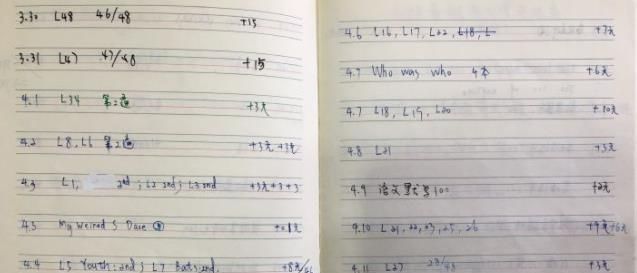 3.30 L48 46/48 +15
3.31 L47 47/48 +15
4.1 L34 第2遍 +3元
4.2 L8, L6 第2遍 +3元 +3元
4.3 L1, 2nd; L2 2nd; L3 2nd +3元+3+3
4.3 My Weired S Dave
4.4 L5 Youth: 2nd; L7 Bats: 2nd. +8元
4.6 L16, L17, L22, L18, L
4.7 Who was who 4本 +6元
4.7 L18, L19, L20 +10元
4.8 L21 +3元
4.9 语文默写100 +2元
9.10 L21, 22, 23, 25, 26 +9元+6元
4.11 L27 +3元